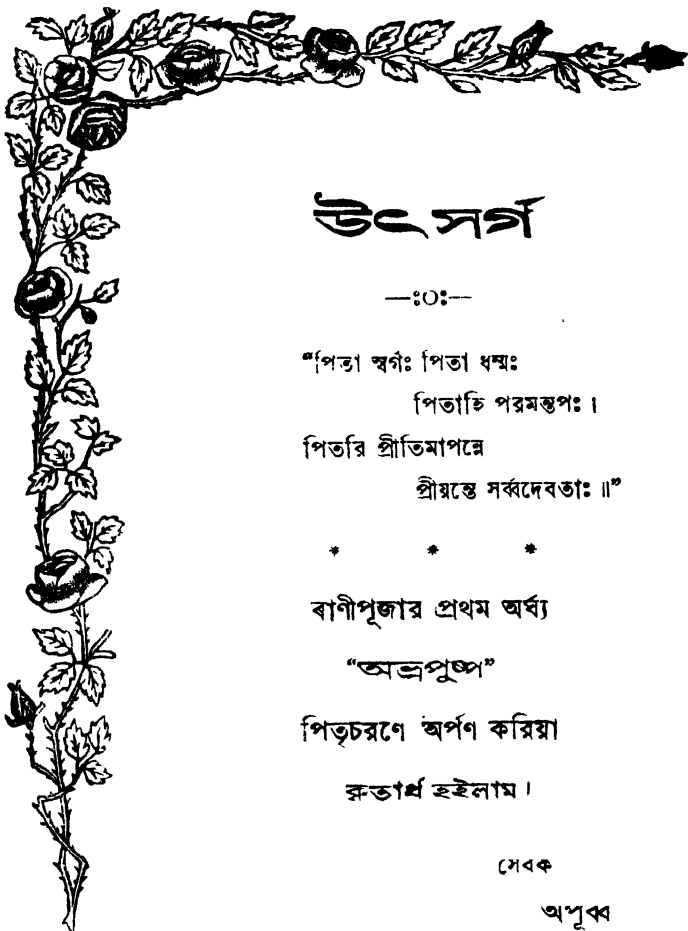 উৎসর্গ
—ঃ০ঃ—
“পিতা স্বর্গঃ পিতা ধর্ম্মঃ
পিতাহি পরমন্তপঃ।
পিতরি প্রীতিমাপন্নে
প্রীয়ন্তে সর্ব্বদেবতাঃ॥”
* * *
বাণীপূজার প্রথম অর্ঘ্য
“অভ্রপুষ্প”
পিতৃচরণে অর্পণ করিয়া
কৃতার্থ হইলাম।
সেবক
অপূর্ব্ব